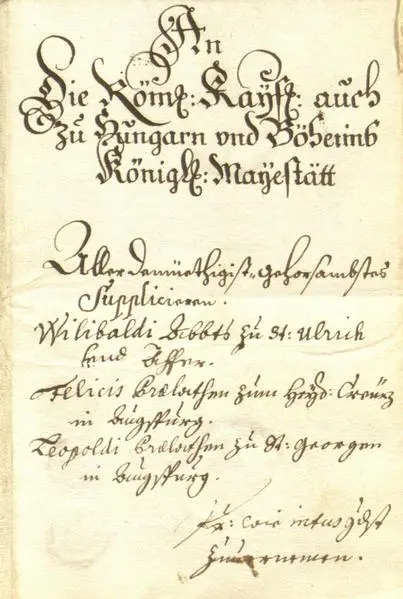 An
Die Röm: Kaÿß: auch
zu Hungarn vnd Böheimb
Königl: Mayestätt
Aller demüethigist-gehorsambstes
Supplicieren.
Wilibaldi Abbts zu St: Ulrich
und Affer.
Felicis Prælathen zum Heÿl: Creütz
in Augspurg.
Leopoldi Prælathen zu St: Georgen
in Augspurg.
wie intus
zuuernemen.